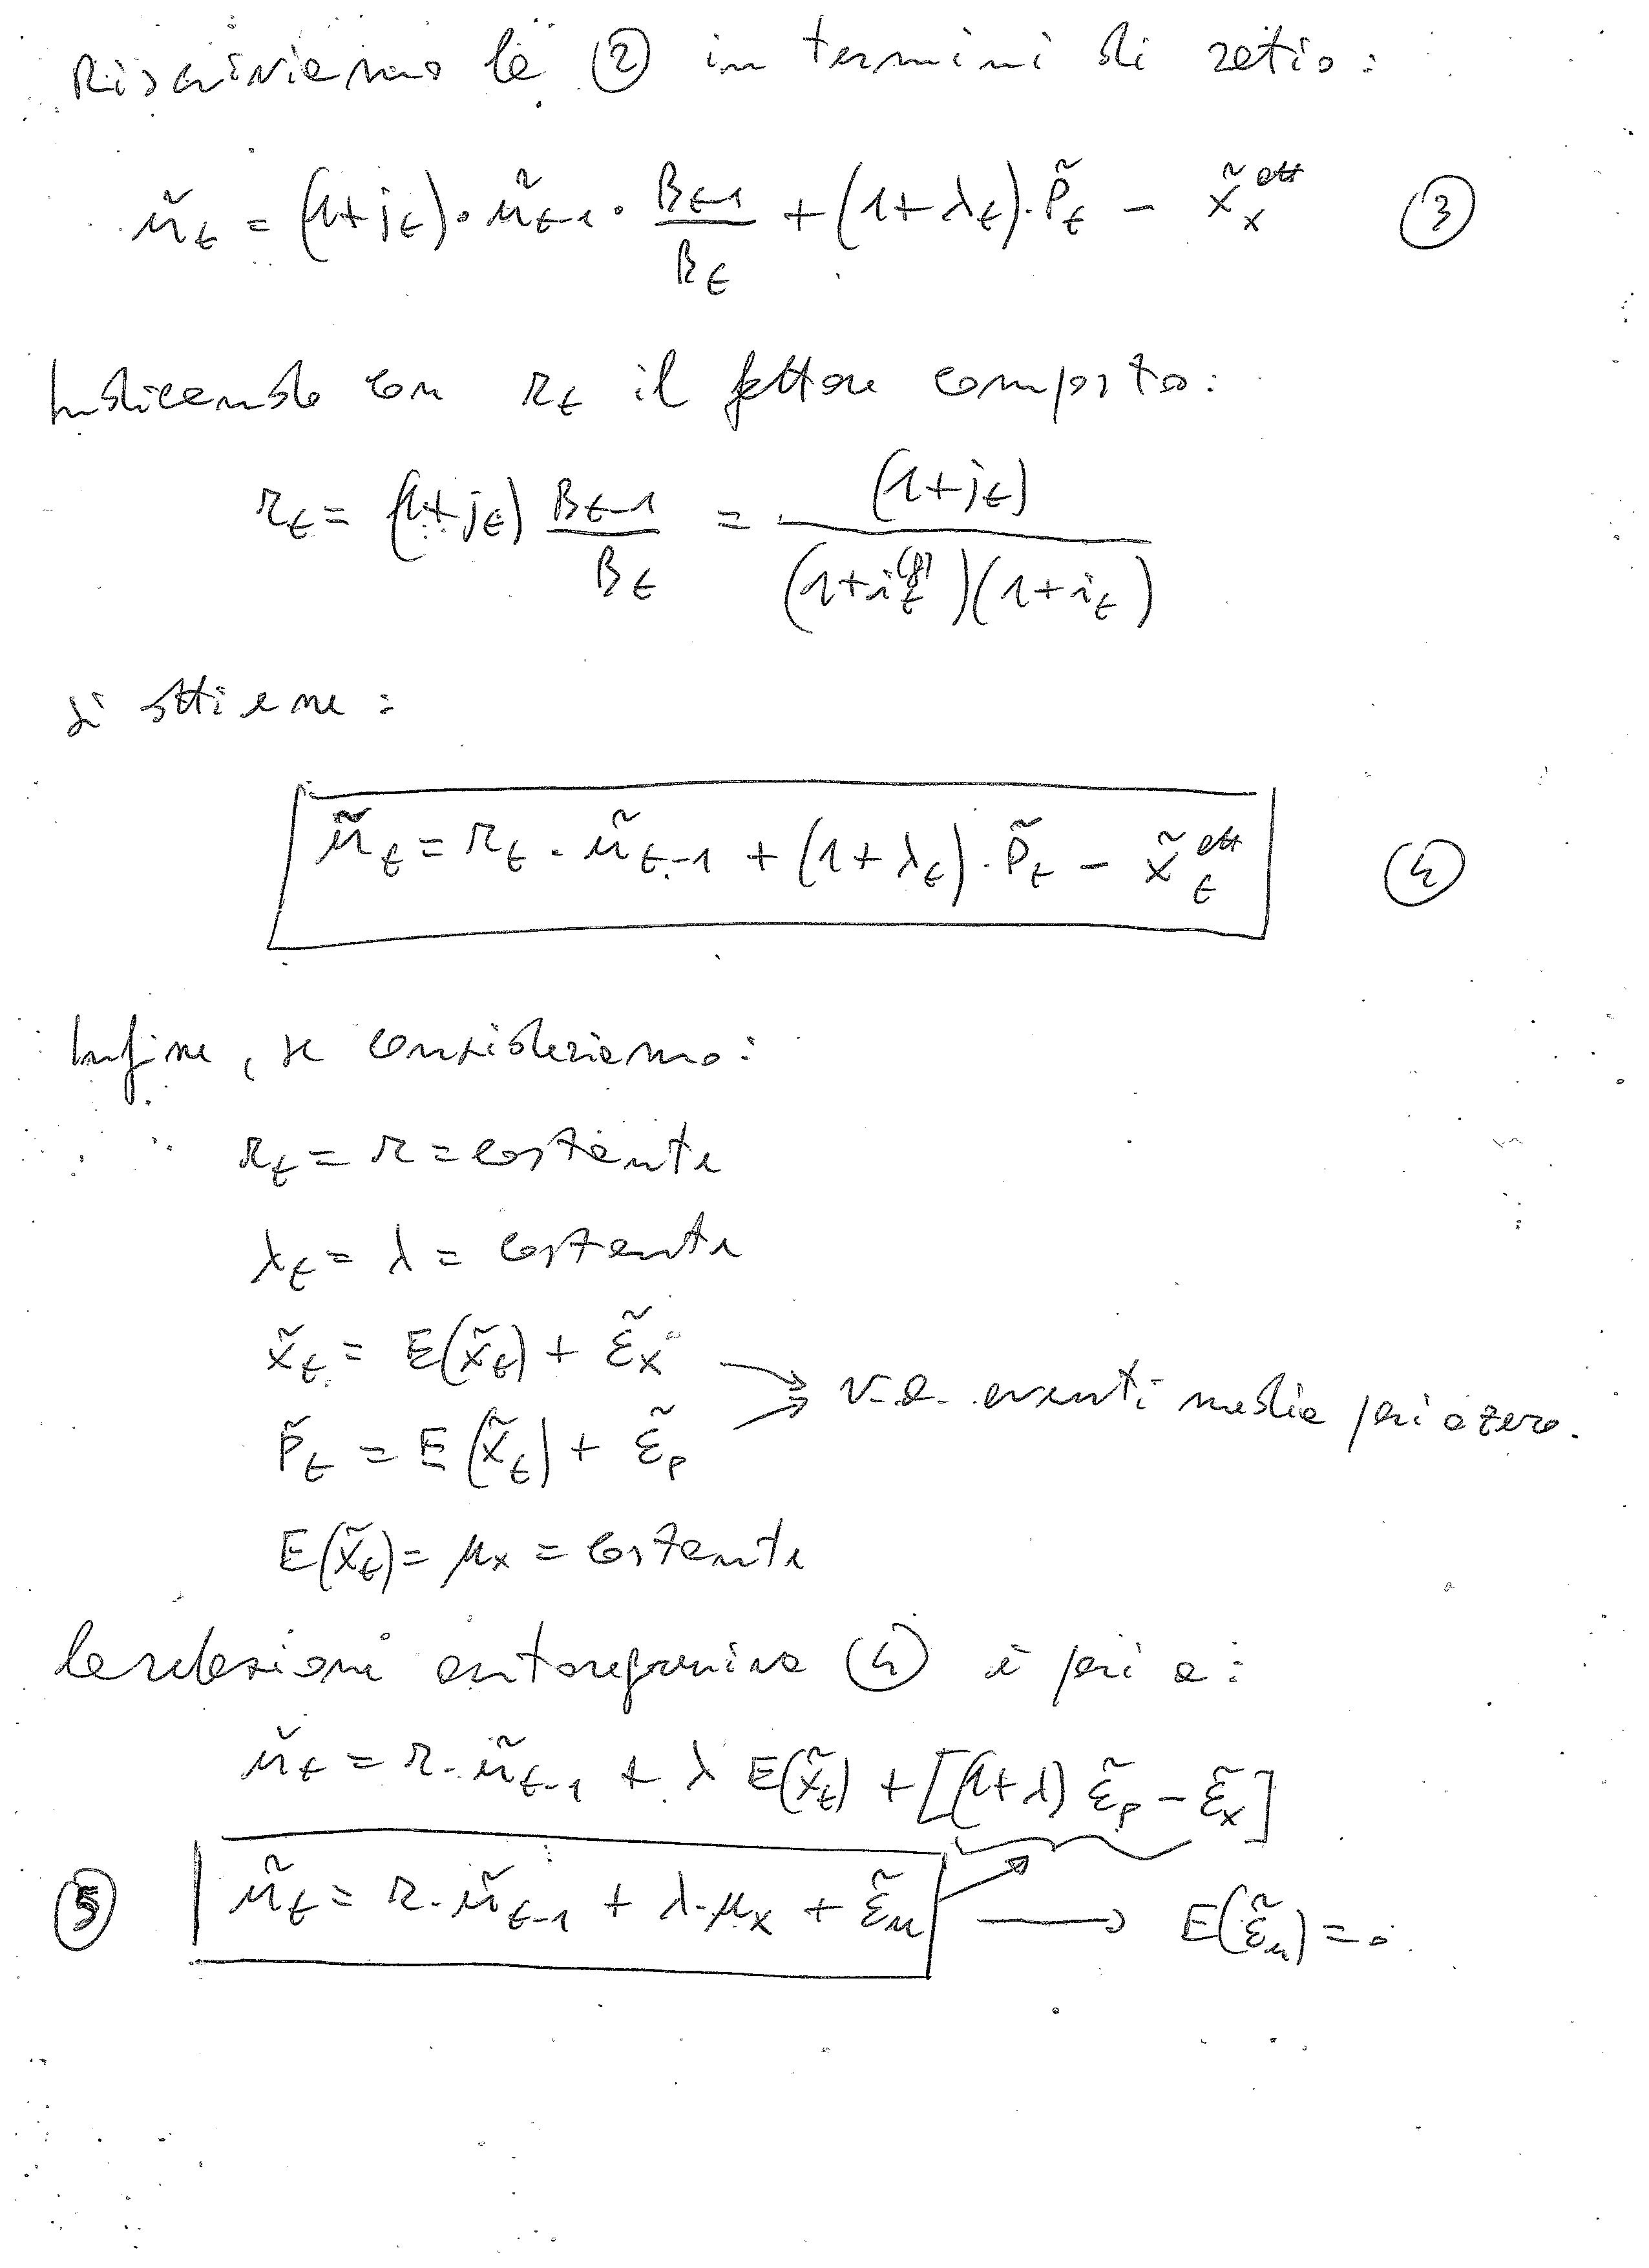 Riscriviamo la ② in termini di ratio:
ũ_t = (1+j_t)·ũ_{t-1}·B_{t-1}/B_t + (1+λ_t)·P̃_t − x̃_x^{att} ③
Indicando con r_t il fattore composto:
r_t = (1+j_t) B_{t-1}/B_t = (1+j_t)/((1+i_t^{(g)})(1+i_t))
si ottiene:
ũ_t = r_t · ũ_{t-1} + (1+λ_t)·P̃_t − x̃_t^{att} ④
Infine, se consideriamo:
r_t = r = costante
λ_t = λ = costante
x̃_t = E(x̃_t) + ε̃_x
P̃_t = E(x̃_t) + ε̃_p → v.a. aventi media pari a zero.
E(x̃_t) = μ_x = costante
la relazione autoregressiva ④ è pari a:
ũ_t = r·ũ_{t-1} + λ E(x̃_t) + [(1+λ) ε̃_p − ε̃_x]
⑤ ũ_t = r·ũ_{t-1} + λ·μ_x + ε̃_u → E(ε̃_u) = 0